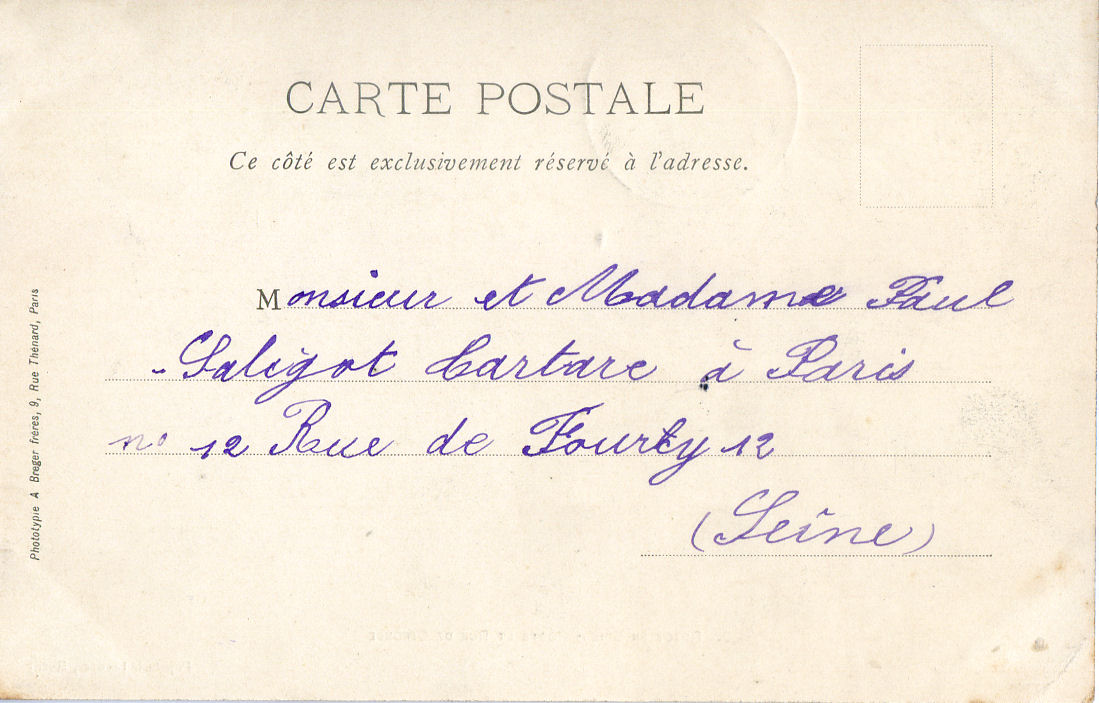 CARTE POSTALE
Ce côté est exclusivement réservé à l'adresse.
Monsieur et Madame Paul
Saligot Cartare à Paris
n° 12 Rue de Fourcy 12
(Seine)
Phototypie A Breger frères, 9, Rue Thenard, Paris